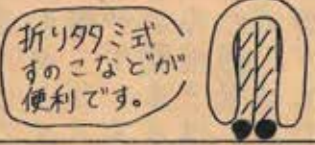 折りタタミ式
すのこなどが
便利です。